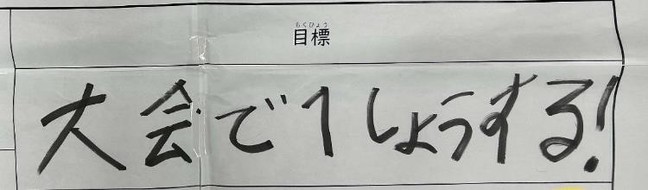 もくひょう
目標
大会で1しょうする!